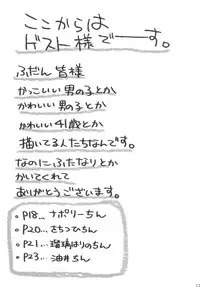 ここからは
ゲスト様でーーす。
ふだん 皆様
かっこいい 男の子とか
かわいい 男の子とか
かわいい 41歳とか
描いてる人たちなんです。
なのにふたなりとか
かいてくれて
ありがとうございます。
・P18... ナポリーちん
・P20... さちっひちん
・P21... 瑠璃はりのちん
・P23... 油井ちん